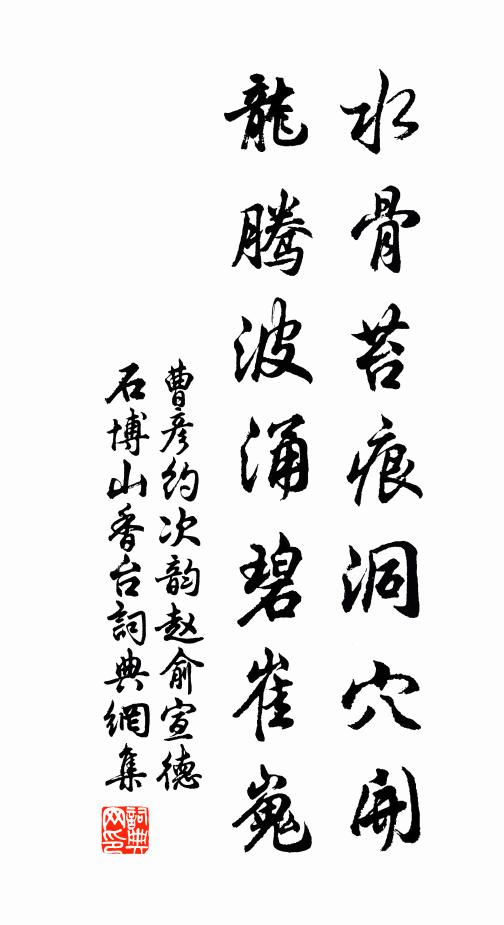 水骨苔痕洞穴開
龍騰波涌碧崔嵬
曹彦約次韵赵俞宣德
石博山香台詞典網集
詞典网印